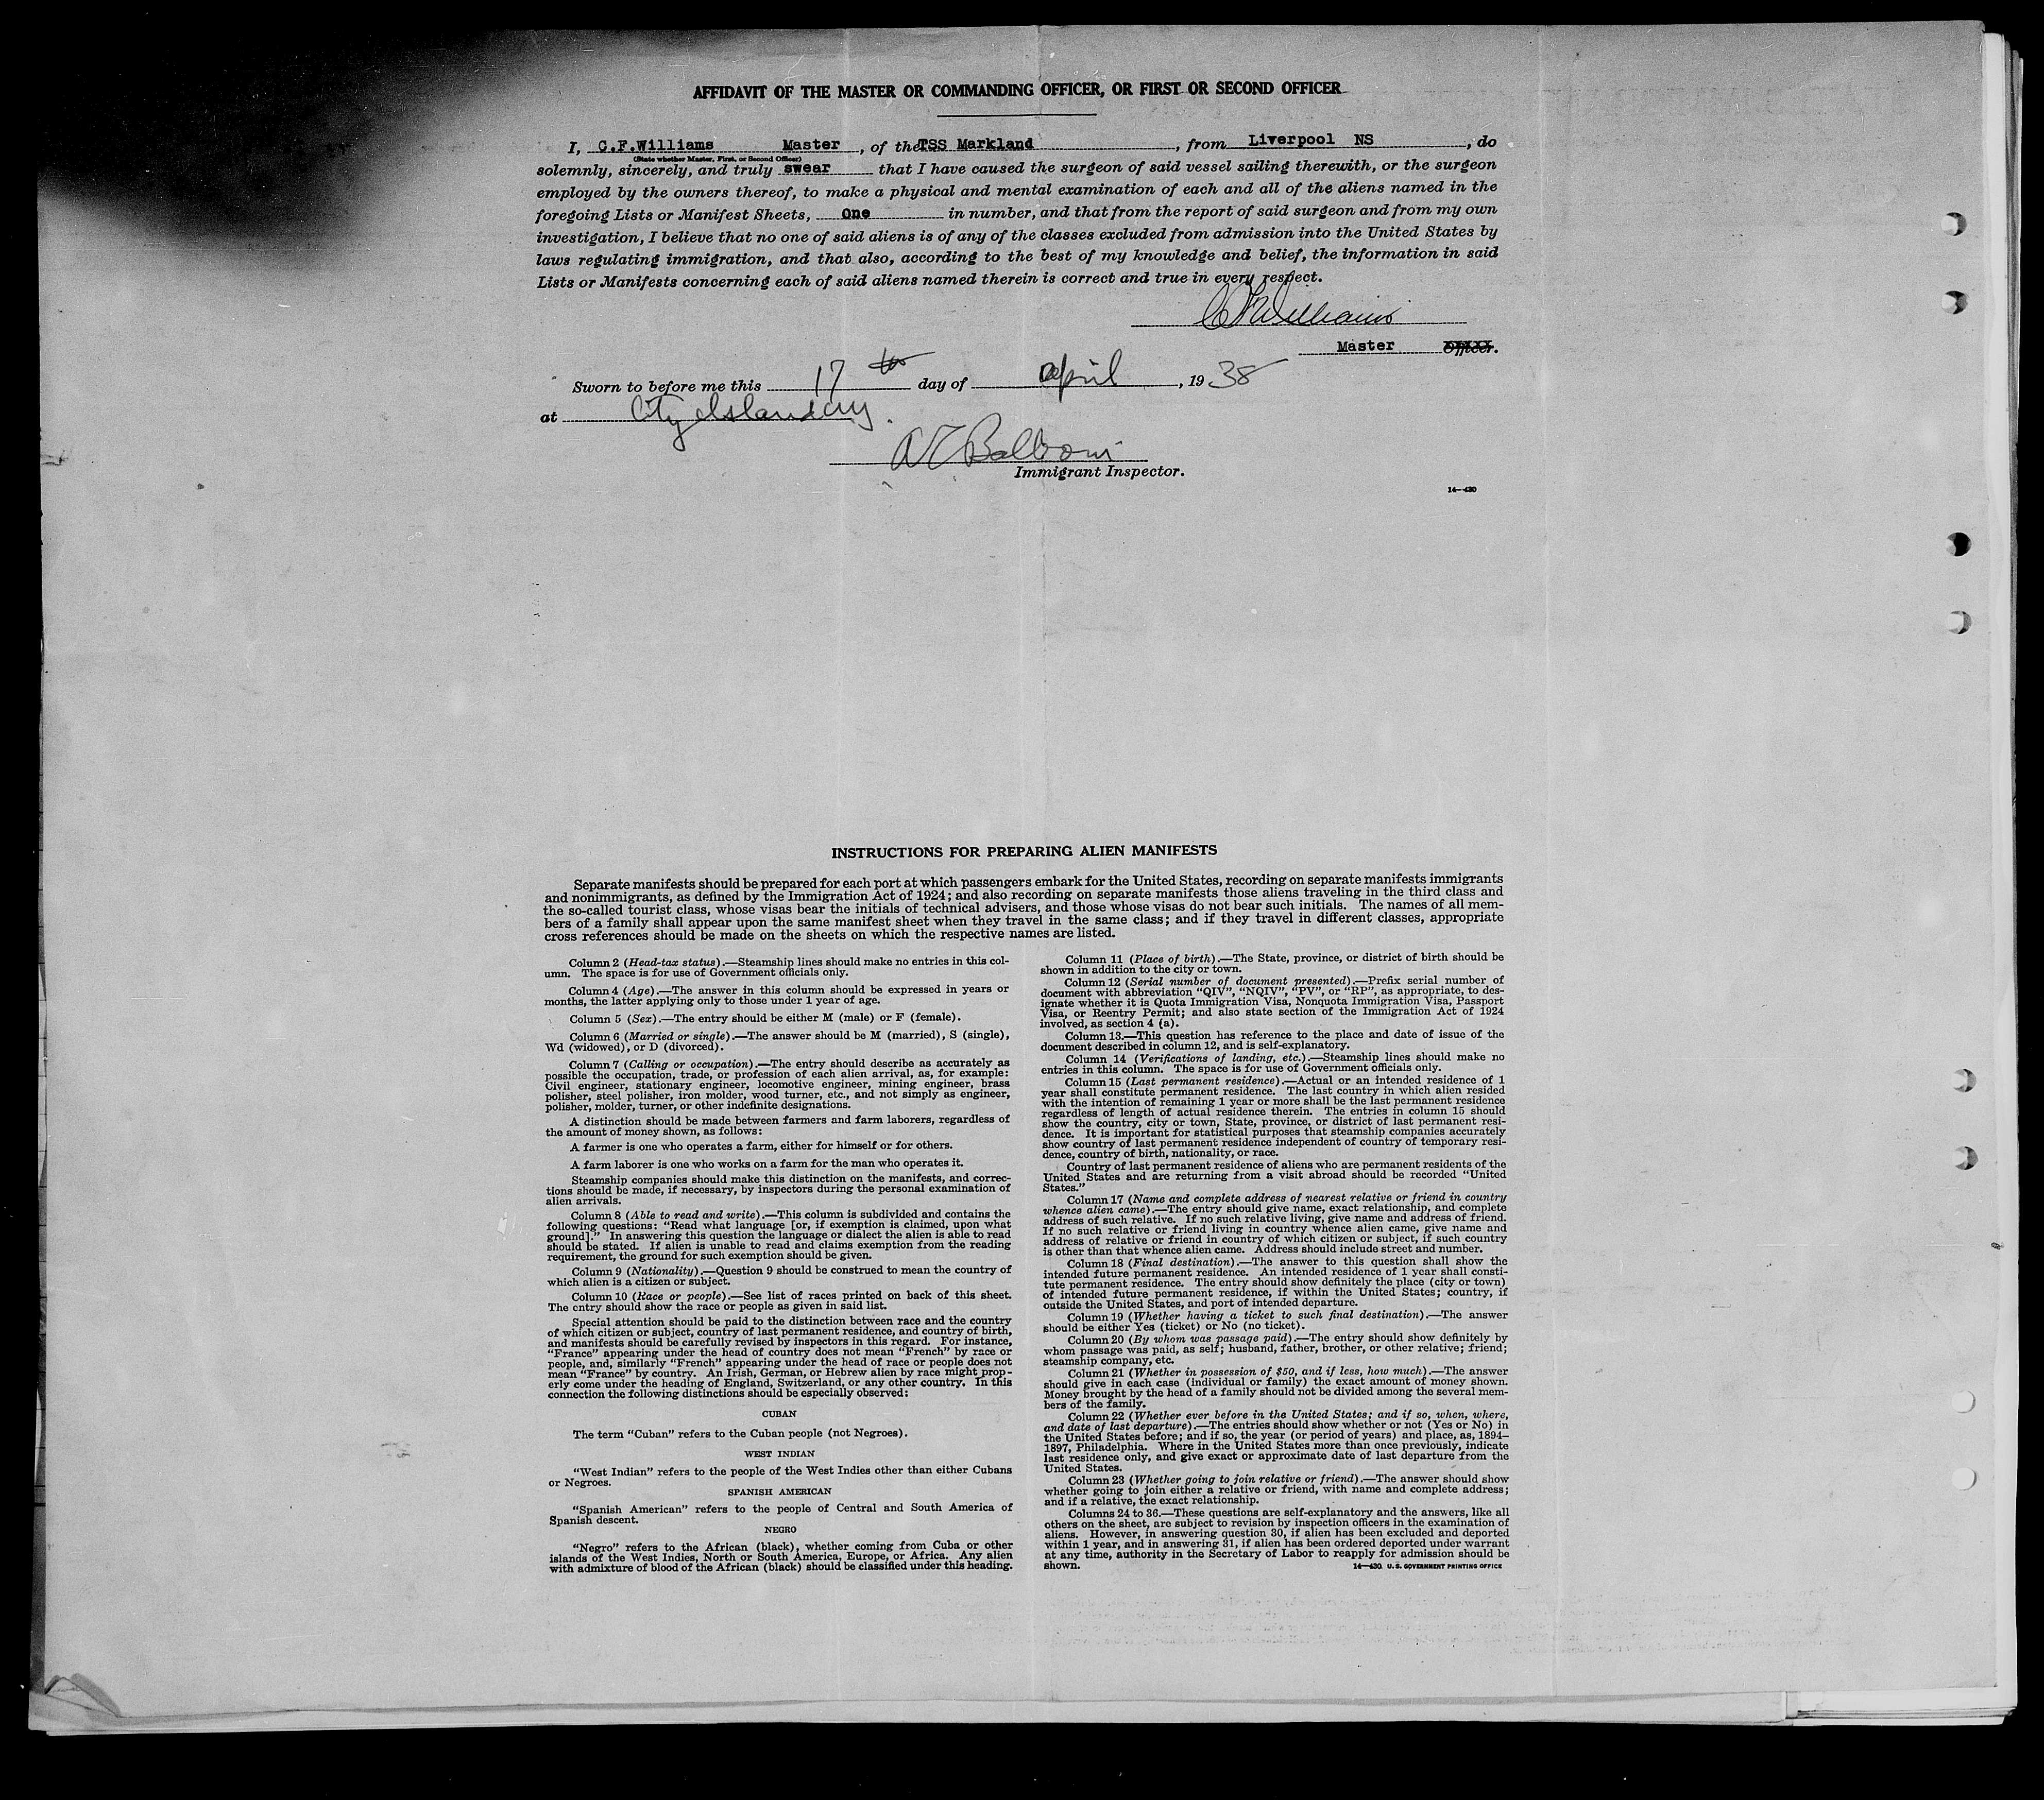 AFFIDAVIT OF THE MASTER OR COMMANDING OFFICER, OR FIRST OR SECOND OFFICER
I, C.F.Williams Master, of the TSS Markland, from Liverpool NS, do
(State whether Master, First, or Second Officer)
solemnly, sincerely, and truly swear that I have caused the surgeon of said vessel sailing therewith, or the surgeon
employed by the owners thereof, to make a physical and mental examination of each and all of the aliens named in the
foregoing Lists or Manifest Sheets, One in number, and that from the report of said surgeon and from my own
investigation, I believe that no one of said aliens is of any of the classes excluded from admission into the United States by
laws regulating immigration, and that also, according to the best of my knowledge and belief, the information in said
Lists or Manifests concerning each of said aliens named therein is correct and true in every respect.
CF Williams
Master Officer.
Sworn to before me this 17th day of April, 1938
at City Island NY.
Immigrant Inspector.
14—430
INSTRUCTIONS FOR PREPARING ALIEN MANIFESTS
Separate manifests should be prepared for each port at which passengers embark for the United States, recording on separate manifests immigrants
and nonimmigrants, as defined by the Immigration Act of 1924; and also recording on separate manifests those aliens traveling in the third class and
the so-called tourist class, whose visas bear the initials of technical advisers, and those whose visas do not bear such initials. The names of all mem-
bers of a family shall appear upon the same manifest sheet when they travel in the same class; and if they travel in different classes, appropriate
cross references should be made on the sheets on which the respective names are listed.
Column 2 (Head-tax status).—Steamship lines should make no entries in this col-
umn. The space is for use of Government officials only.
Column 4 (Age).—The answer in this column should be expressed in years or
months, the latter applying only to those under 1 year of age.
Column 5 (Sex).—The entry should be either M (male) or F (female).
Column 6 (Married or single).—The answer should be M (married), S (single),
Wd (widowed), or D (divorced).
Column 7 (Calling or occupation).—The entry should describe as accurately as
possible the occupation, trade, or profession of each alien arrival, as, for example:
Civil engineer, stationary engineer, locomotive engineer, mining engineer, brass
polisher, steel polisher, iron molder, wood turner, etc., and not simply as engineer,
polisher, molder, turner, or other indefinite designations.
A distinction should be made between farmers and farm laborers, regardless of
the amount of money shown, as follows:
A farmer is one who operates a farm, either for himself or for others.
A farm laborer is one who works on a farm for the man who operates it.
Steamship companies should make this distinction on the manifests, and correc-
tions should be made, if necessary, by inspectors during the personal examination of
alien arrivals.
Column 8 (Able to read and write).—This column is subdivided and contains the
following questions: “Read what language [or, if exemption is claimed, upon what
ground].” In answering this question the language or dialect the alien is able to read
should be stated. If alien is unable to read and claims exemption from the reading
requirement, the ground for such exemption should be given.
Column 9 (Nationality).—Question 9 should be construed to mean the country of
which alien is a citizen or subject.
Column 10 (Race or people).—See list of races printed on back of this sheet.
The entry should show the race or people as given in said list.
Special attention should be paid to the distinction between race and the country
of which citizen or subject, country of last permanent residence, and country of birth,
and manifests should be carefully revised by inspectors in this regard. For instance,
“France” appearing under the head of country does not mean “French” by race or
people, and, similarly “French” appearing under the head of race or people does not
mean “France” by country. An Irish, German, or Hebrew alien by race might prop-
erly come under the heading of England, Switzerland, or any other country. In this
connection the following distinctions should be especially observed:
CUBAN
The term “Cuban” refers to the Cuban people (not Negroes).
WEST INDIAN
“West Indian” refers to the people of the West Indies other than either Cubans
or Negroes.
SPANISH AMERICAN
“Spanish American” refers to the people of Central and South America of
Spanish descent.
NEGRO
“Negro” refers to the African (black), whether coming from Cuba or other
islands of the West Indies, North or South America, Europe, or Africa. Any alien
with admixture of blood of the African (black) should be classified under this heading.
Column 11 (Place of birth).—The State, province, or district of birth should be
shown in addition to the city or town.
Column 12 (Serial number of document presented).—Prefix serial number of
document with abbreviation “QIV”, “NQIV”, “PV”, or “RP”, as appropriate, to des-
ignate whether it is Quota Immigration Visa, Nonquota Immigration Visa, Passport
Visa, or Reentry Permit; and also state section of the Immigration Act of 1924
involved, as section 4 (a).
Column 13.—This question has reference to the place and date of issue of the
document described in column 12, and is self-explanatory.
Column 14 (Verifications of landing, etc.).—Steamship lines should make no
entries in this column. The space is for use of Government officials only.
Column 15 (Last permanent residence).—Actual or an intended residence of 1
year shall constitute permanent residence. The last country in which alien resided
with the intention of remaining 1 year or more shall be the last permanent residence
regardless of length of actual residence therein. The entries in column 15 should
show the country, city or town, State, province, or district of last permanent resi-
dence. It is important for statistical purposes that steamship companies accurately
show country of last permanent residence independent of country of temporary resi-
dence, country of birth, nationality, or race.
Country of last permanent residence of aliens who are permanent residents of the
United States and are returning from a visit abroad should be recorded “United
States.”
Column 17 (Name and complete address of nearest relative or friend in country
whence alien came).—The entry should give name, exact relationship, and complete
address of such relative. If no such relative living, give name and address of friend.
If no such relative or friend living in country whence alien came, give name and
address of relative or friend in country of which citizen or subject, if such country
is other than that whence alien came. Address should include street and number.
Column 18 (Final destination).—The answer to this question shall show the
intended future permanent residence. An intended residence of 1 year shall consti-
tute permanent residence. The entry should show definitely the place (city or town)
of intended future permanent residence, if within the United States; country, if
outside the United States, and port of intended departure.
Column 19 (Whether having a ticket to such final destination).—The answer
should be either Yes (ticket) or No (no ticket).
Column 20 (By whom was passage paid).—The entry should show definitely by
whom passage was paid, as self; husband, father, brother, or other relative; friend;
steamship company, etc.
Column 21 (Whether in possession of $50, and if less, how much).—The answer
should give in each case (individual or family) the exact amount of money shown.
Money brought by the head of a family should not be divided among the several mem-
bers of the family.
Column 22 (Whether ever before in the United States; and if so, when, where,
and date of last departure).—The entries should show whether or not (Yes or No) in
the United States before; and if so, the year (or period of years) and place, as, 1894–
1897, Philadelphia. Where in the United States more than once previously, indicate
last residence only, and give exact or approximate date of last departure from the
United States.
Column 23 (Whether going to join relative or friend).—The answer should show
whether going to join either a relative or friend, with name and complete address;
and if a relative, the exact relationship.
Columns 24 to 36.—These questions are self-explanatory and the answers, like all
others on the sheet, are subject to revision by inspection officers in the examination of
aliens. However, in answering question 30, if alien has been excluded and deported
within 1 year, and in answering 31, if alien has been ordered deported under warrant
at any time, authority in the Secretary of Labor to reapply for admission should be
shown.
14—430 U. S. GOVERNMENT PRINTING OFFICE